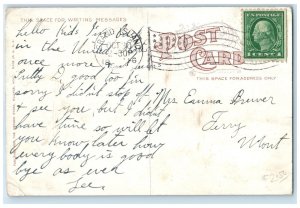 THIS SPACE FOR WRITING MESSAGES
POST CARD
U.S. POSTAGE
1 CENT 1
THIS SPACE FOR ADDRESS ONLY
Hello Kids I'm back
in the United
once more
I good too I'm
sorry I didn't stop off
& see you, but I didn't
have time so will let
you know later how
everybody is good
bye as ever
Lee.
Mrs Emma Brewer
Terry
Mont